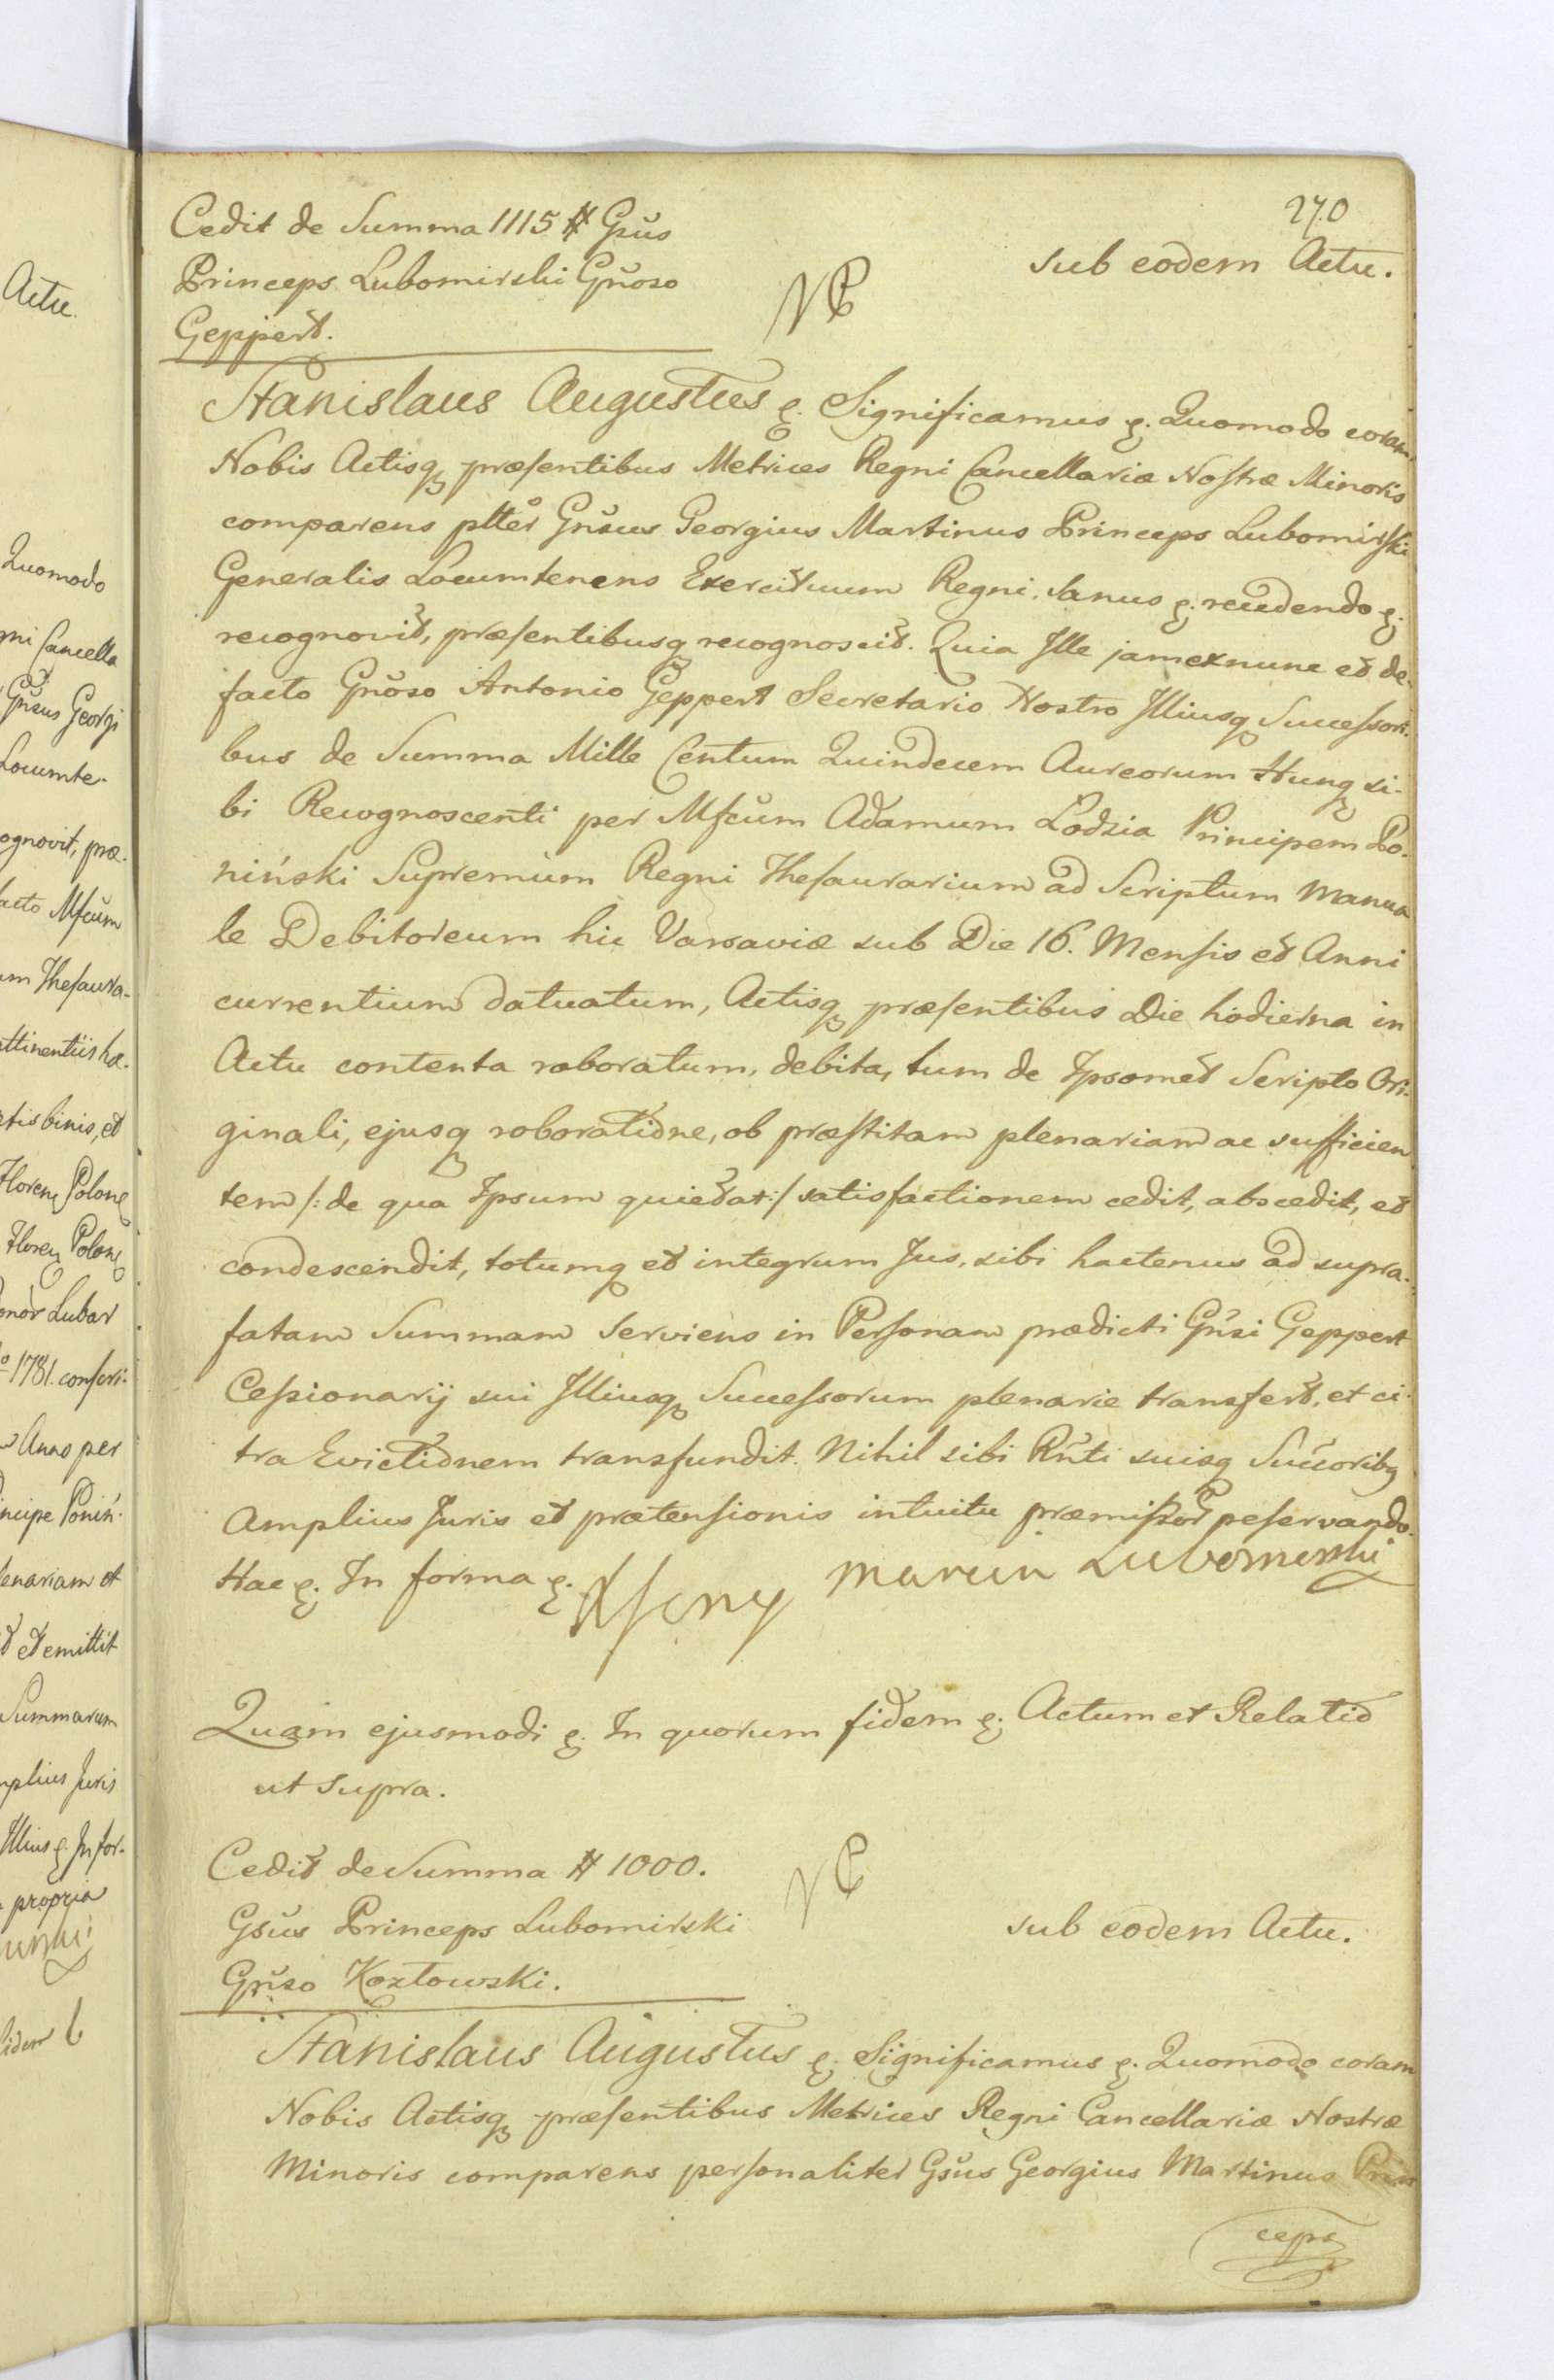 270
Cedit de Summa 1115 # Gsus
Princeps Lubomirski Gnoso
Geppert.
sub eodem Actu.
Stanislaus Augustus &. Significamus &. Quomodo coram
Nobis Actisq præsentibus Metrices Regni Cancellariæ Nostræ Minoris
comparens pltter Gnsus Georgius Martinus Princeps Lubomirski
Generalis Locumtenens Exercituum Regni, sanus &. recedendo &.
recognovit, præsentibusq recognoscit. Quia Ille jamexnunc et de-
facto Gnoso Antonio Geppert Secretario Nostro Illiusq Successori-
bus de Summa Mille Centum Quindecem Aureorum Hung si-
bi Recognoscenti per Mfcum Adamum Lodzia Principem Po-
niński Supremum Regni Thesaurarium ad Scriptum manua
le Debitoreum hic Varsaviæ sub Die 16. Mensis et Anni
currentium datuatum, Actisq præsentibus Die hodierna in
Actu contenta roboratum, debita, tum de Ipsomet Scripto Ori-
ginali, ejusq roboratione, ob præstitam plenariam ac sufficien
tem /: de qua Ipsum quietat :/ satisfactionem cedit, abscedit, et
condescendit, totumq et integrum Jus, sibi hactenus ad supra-
fatam Summam Serviens in Personam prædicti Gnsi Geppert
Cessionarij sui Illiusq Successorum plenarie transfert, et ci-
tra Evictionem transfundit. Nihil sibi Rnti suisq Succoribq
Amplius Juris et prætensionis intuitu præmissor reservando.
Hac &. In forma &.
Marcin Lubomirski
Quam ejusmodi &. In quorum fidem &. Actum et Relatio
ut supra.
Cedit de Summa # 1000.
Gsus Princeps Lubomirski
Gnso Kozłowski.
sub eodem Actu.
Stanislaus Augustus &. Significamus &. Quomodo coram
Nobis Actisq præsentibus Metrices Regni Cancellariæ Nostræ
Minoris comparens personaliter Gsus Georgius Martinus Prin
ceps